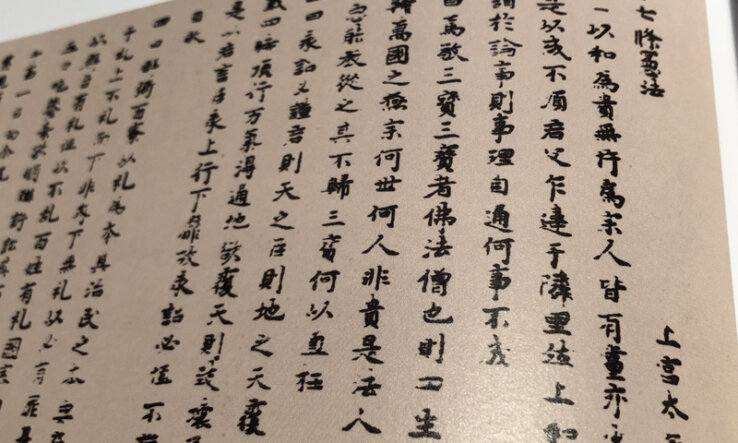 七條憲法 上宮太
一以和為貴無忤為宗人皆有黨亦
是以或不順君父乍違于隣里然上和
於論事則事理自通何事不成
曰篤敬三寶三寶者佛法僧也則四生
歸萬國之極宗何世何人非貴是法人
惡能教從之其不歸三寶何以直枉
三曰承詔必謹君則天之臣則地之天覆
載四時順行万氣得通地欲覆天則致壞
是以君言臣承上行下靡故承詔必慎不
自敗
四曰群卿百寮以礼為本其治民之本要在
乎礼上不礼而下非齊下無礼以必有罪是
以群臣有礼位次不乱百姓有礼國家
五曰絶餮棄欲明辨訴訟其百